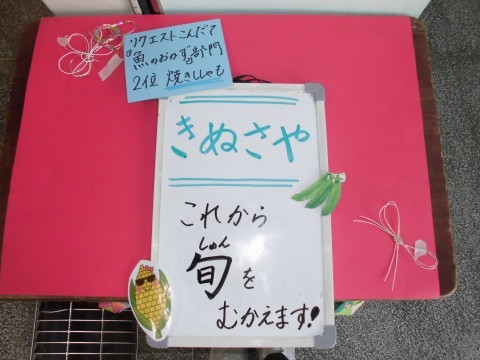 リクエストこんだて
『魚のおかず』部門
2位 焼きししゃも
きぬさや
これから
しゅん
旬を
むかえます!